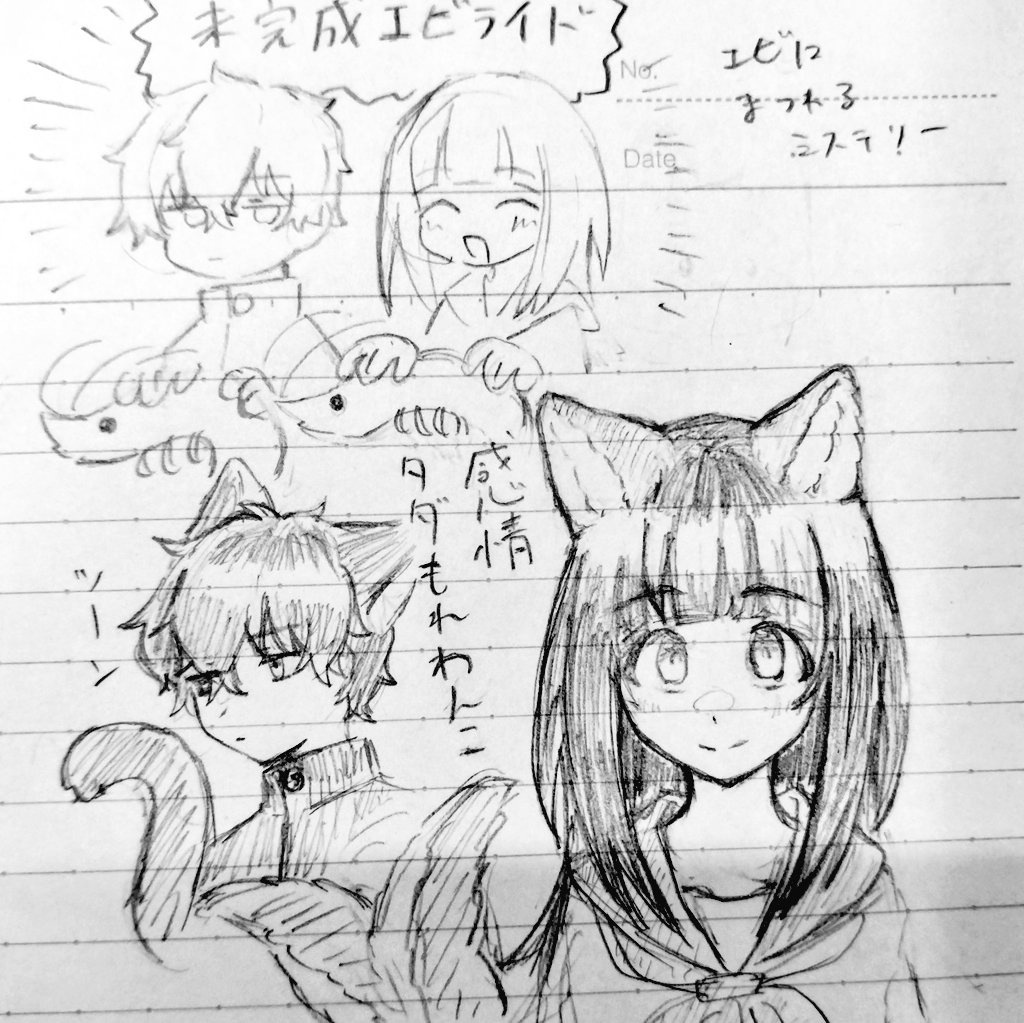 未完成エビライド
No.
エビに
まつわる
ミステリー
Date
感情
タダもれわんこ
ツーン